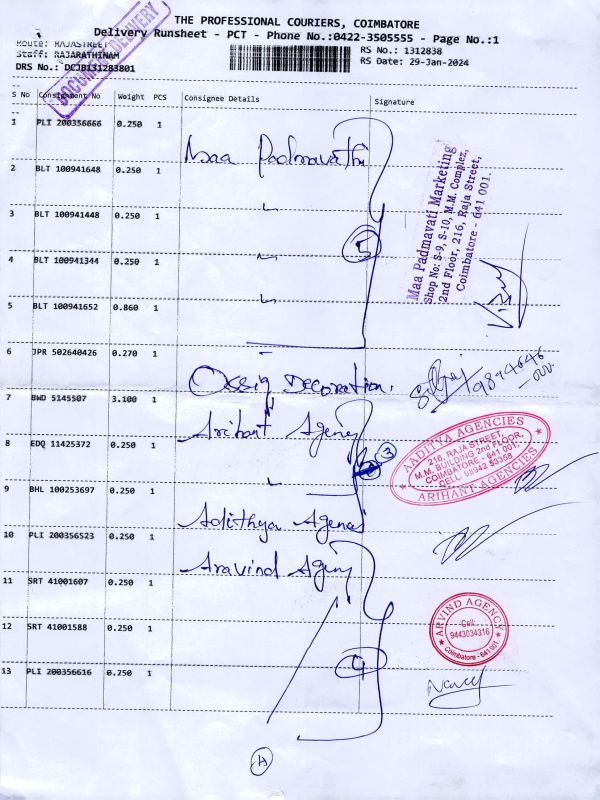 THE PROFESSIONAL COURIERS, COIMBATORE
Delivery Runsheet - PCT - Phone No.:0422-3505555 - Page No.:1
Route: RAJASTREET
Staff: RAJARATHINAM
DRS No.: DCJB131283801
RS No.: 1312838
RS Date: 29-Jan-2024
DOCUMENT DELIVERY
S No Consignment No Weight PCS Consignee Details Signature
1 PLI 200356666 0.250 1 Maa Padmavathi
2 BLT 100941648 0.250 1
3 BLT 100941448 0.250 1
4 BLT 100941344 0.250 1
5 BLT 100941652 0.860 1
5
Maa Padmavati Marketing
Shop No: S-9, S-10, M.M. Complez,
2nd Floor, 216, Raja Street,
Coimbatore - 641 001.
6 JPR 502640426 0.270 1 Decoration.
7 BWD 5145507 3.100 1 Arihant Agency
8 EDQ 11425372 0.250 1
3
9 BHL 100253697 0.250 1 Adithya Agencies
AADITYA AGENCIES
216, RAJA STREET
M.M. BUILDING 2nd FLOOR,
COIMBATORE - 641 001.
CELL: 98942 53358
ARIHANT AGENCIES
10 PLI 200356523 0.250 1 Aravind Agency
11 SRT 41001607 0.250 1
12 SRT 41001588 0.250 1
13 PLI 200356616 0.250 1
4
ARVIND AGENCY
Cell:
9443034316
Coimbatore - 641 001